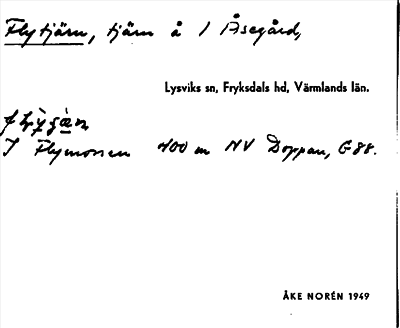 Flytjärn, tjärn å 1 Åsegård,
Lysviks sn, Fryksdals hd, Värmlands län.
I Flymossen 400 m NV Doppan, G 88.
ÅKE NORÉN 1949